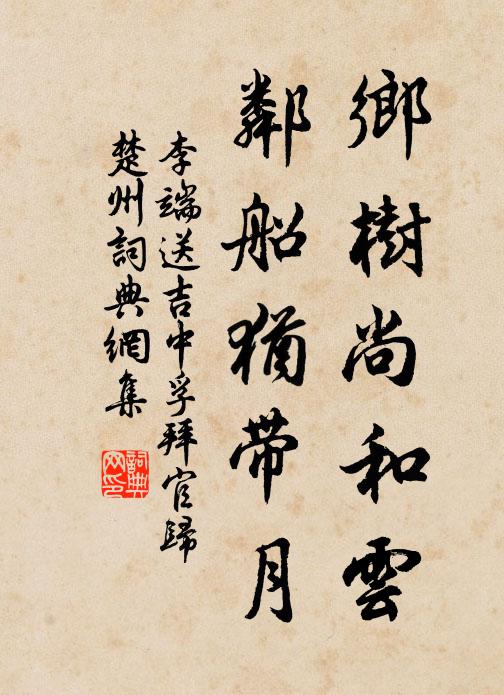 鄉樹尚和雲
鄰船猶帶月
李端送吉中孚拜官歸
楚州詞典網集
詞典
网印